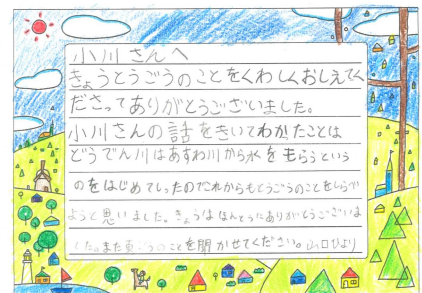 小川さんへ
きょうとうごうのことをくわしくおしえてく
ださってありがとうごさいました。
小川さんの話をきいてわかたことは
どうでん川はあすわ川から水をもらうという
のをはじめてしったのでこれからもとうごうのことをしらべ
ようと思いました。きょうはほんとうにありがとうございま
した。また のことを聞かせてください。山口ひより